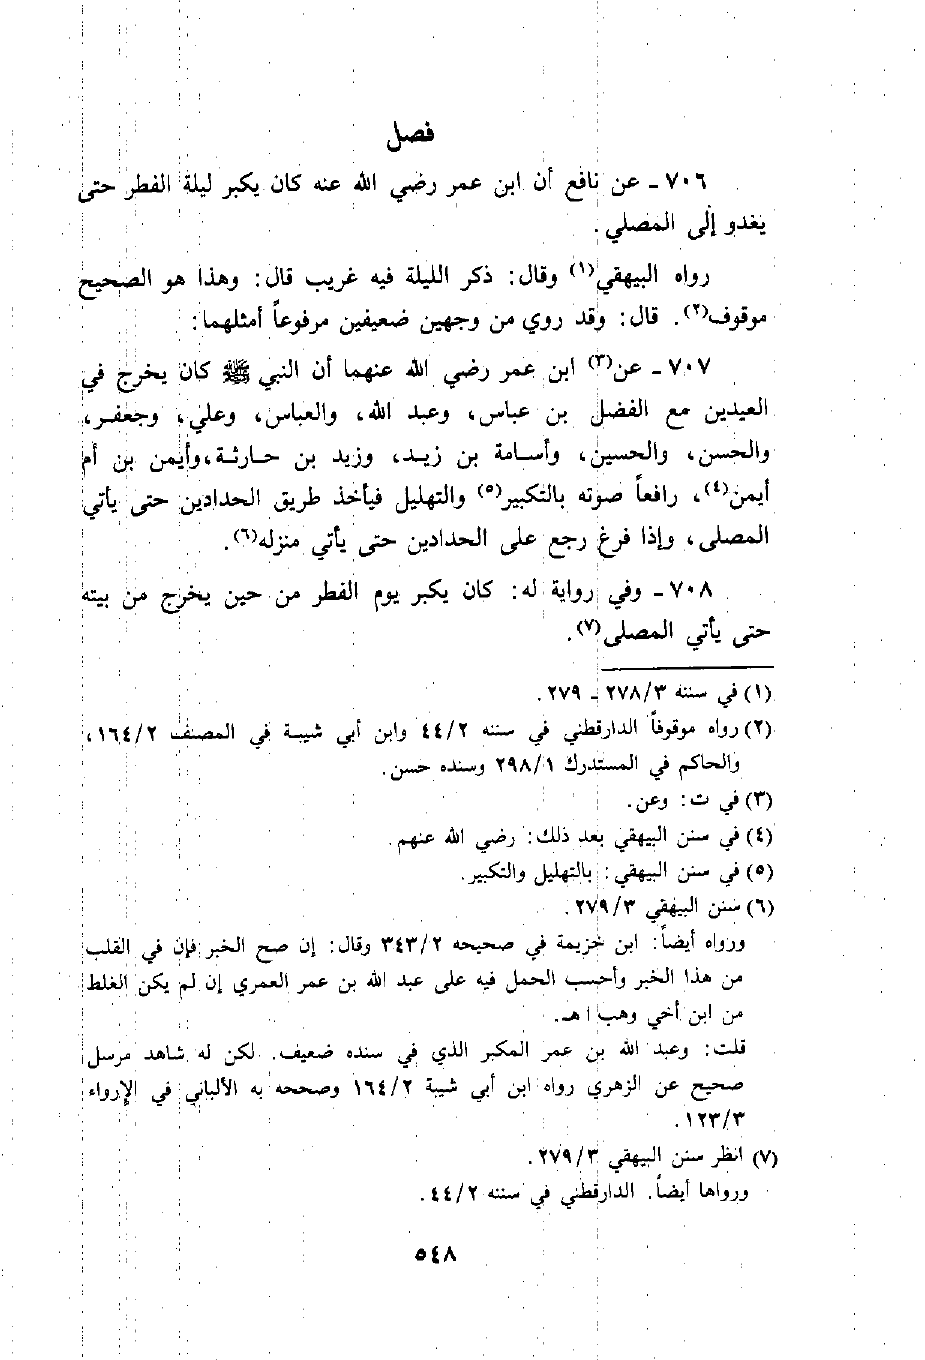 فصل
٧٠٦ - عن نافع أن ابن عمر رضي الله عنه كان يكبر ليلة الفطر حتى
يغدو إلى المصلي .
رواه البيهقي(١) وقال: ذكر الليلة فيه غريب قال: وهذا هو الصحيح
موقوف(٢). قال: وقد روي من وجهين ضعيفين مرفوعاً أمثلهما:
٧٠٧ - عن(٣) ابن عمر رضي الله عنهما أن النبي ﷺ كان يخرج في
العيدين مع الفضل بن عباس، وعبد الله، والعباس، وعلي، وجعفر،
والحسن، والحسين، وأسامة بن زيد، وزيد بن حارثة، وأيمن بن أم
أيمن(٤)، رافعاً صوته بالتكبير(٥) والتهليل فيأخذ طريق الحدادين حتى يأتي
المصلى، وإذا فرغ رجع على الحدادين حتى يأتي منزله(٦).
٧٠٨ - وفي رواية له: كان يكبر يوم الفطر من حين يخرج من بيته
حتى يأتي المصلى(٧).
(١) في سننه ٢٧٨/٣ - ٢٧٩ .
(٢) رواه موقوفاً الدارقطني في سننه ٤٤/٢ وابن أبي شيبة في المصنف ١٦٤/٢،
والحاكم في المستدرك ٢٩٨/١ وسنده حسن.
(٣) في ت: وعن.
(٤) في سنن البيهقي بعد ذلك: رضي الله عنهم.
(٥) في سنن البيهقي: بالتهليل والتكبير.
(٦) سنن البيهقي ٢٧٩/٣ .
ورواه أيضاً: ابن خزيمة في صحيحه ٣٤٣/٢ وقال: إن صح الخبر فإن في القلب
من هذا الخبر وأحسب الحمل فيه على عبد الله بن عمر العمري إن لم يكن الغلط
من ابن أخي وهب ا هـ.
قلت: وعبد الله بن عمر المكبر الذي في سنده ضعيف. لكن له شاهد مرسل
صحيح عن الزهري رواه ابن أبي شيبة ١٦٤/٢ وصححه به الألباني في الإرواء
١٢٣/٣.
(٧) انظر سنن البيهقي ٢٧٩/٣ .
ورواها أيضاً. الدارقطني في سننه ٤٤/٢ .
٥٤٨